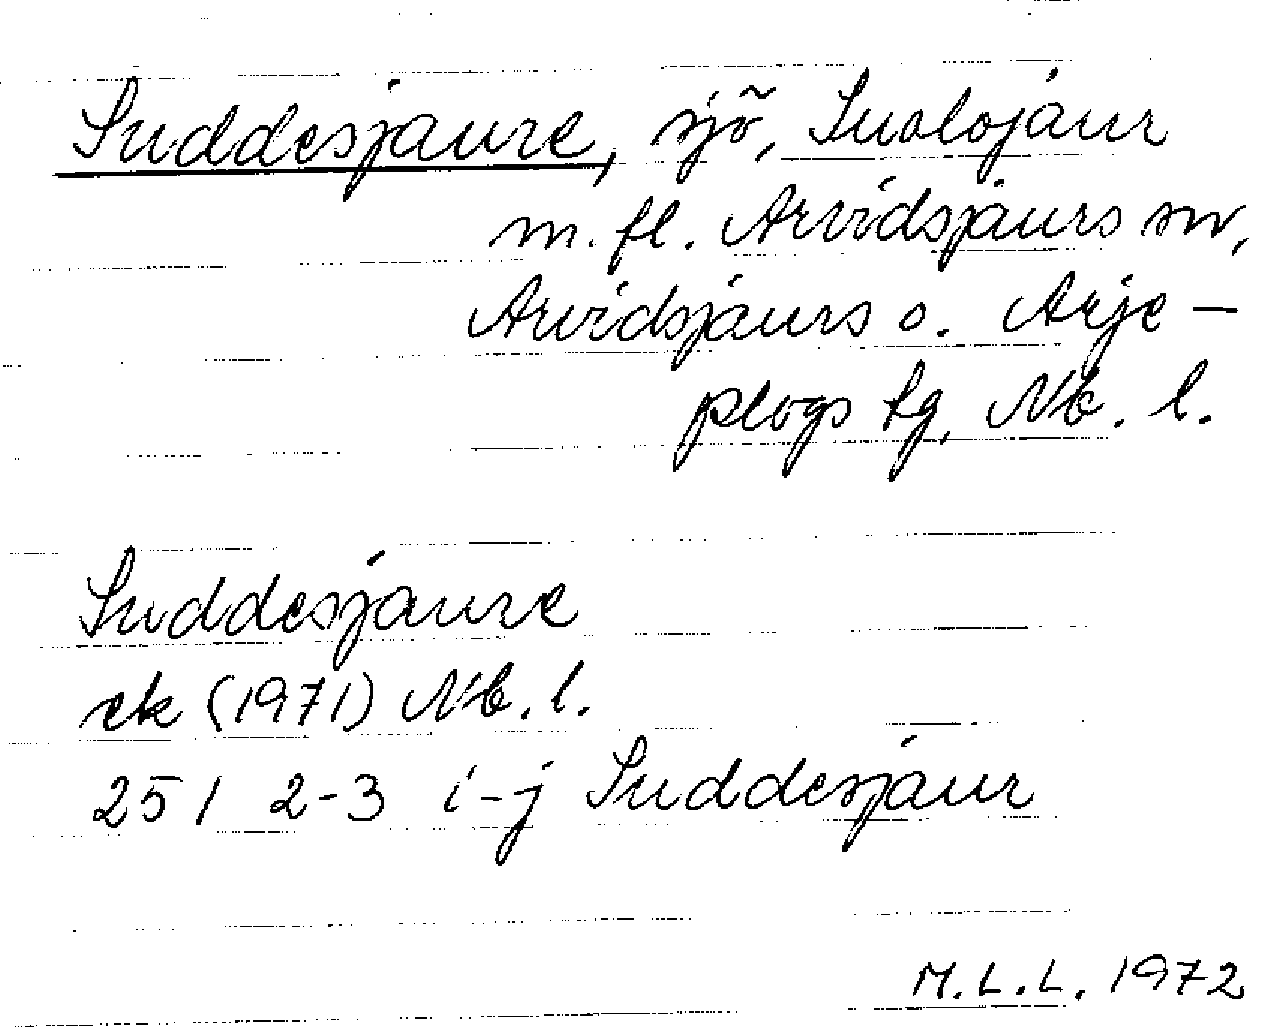 Suddesjaure, sjö, Suolojaur
m. fl. Arvidsjaurs sn,
Arvidsjaurs o. Arje-
plogs tg, Nb. l.
Suddesjaure
ek (1971) Nb. l.
25 I 2-3 i-j Suddesjaur
M.L.L. 1972